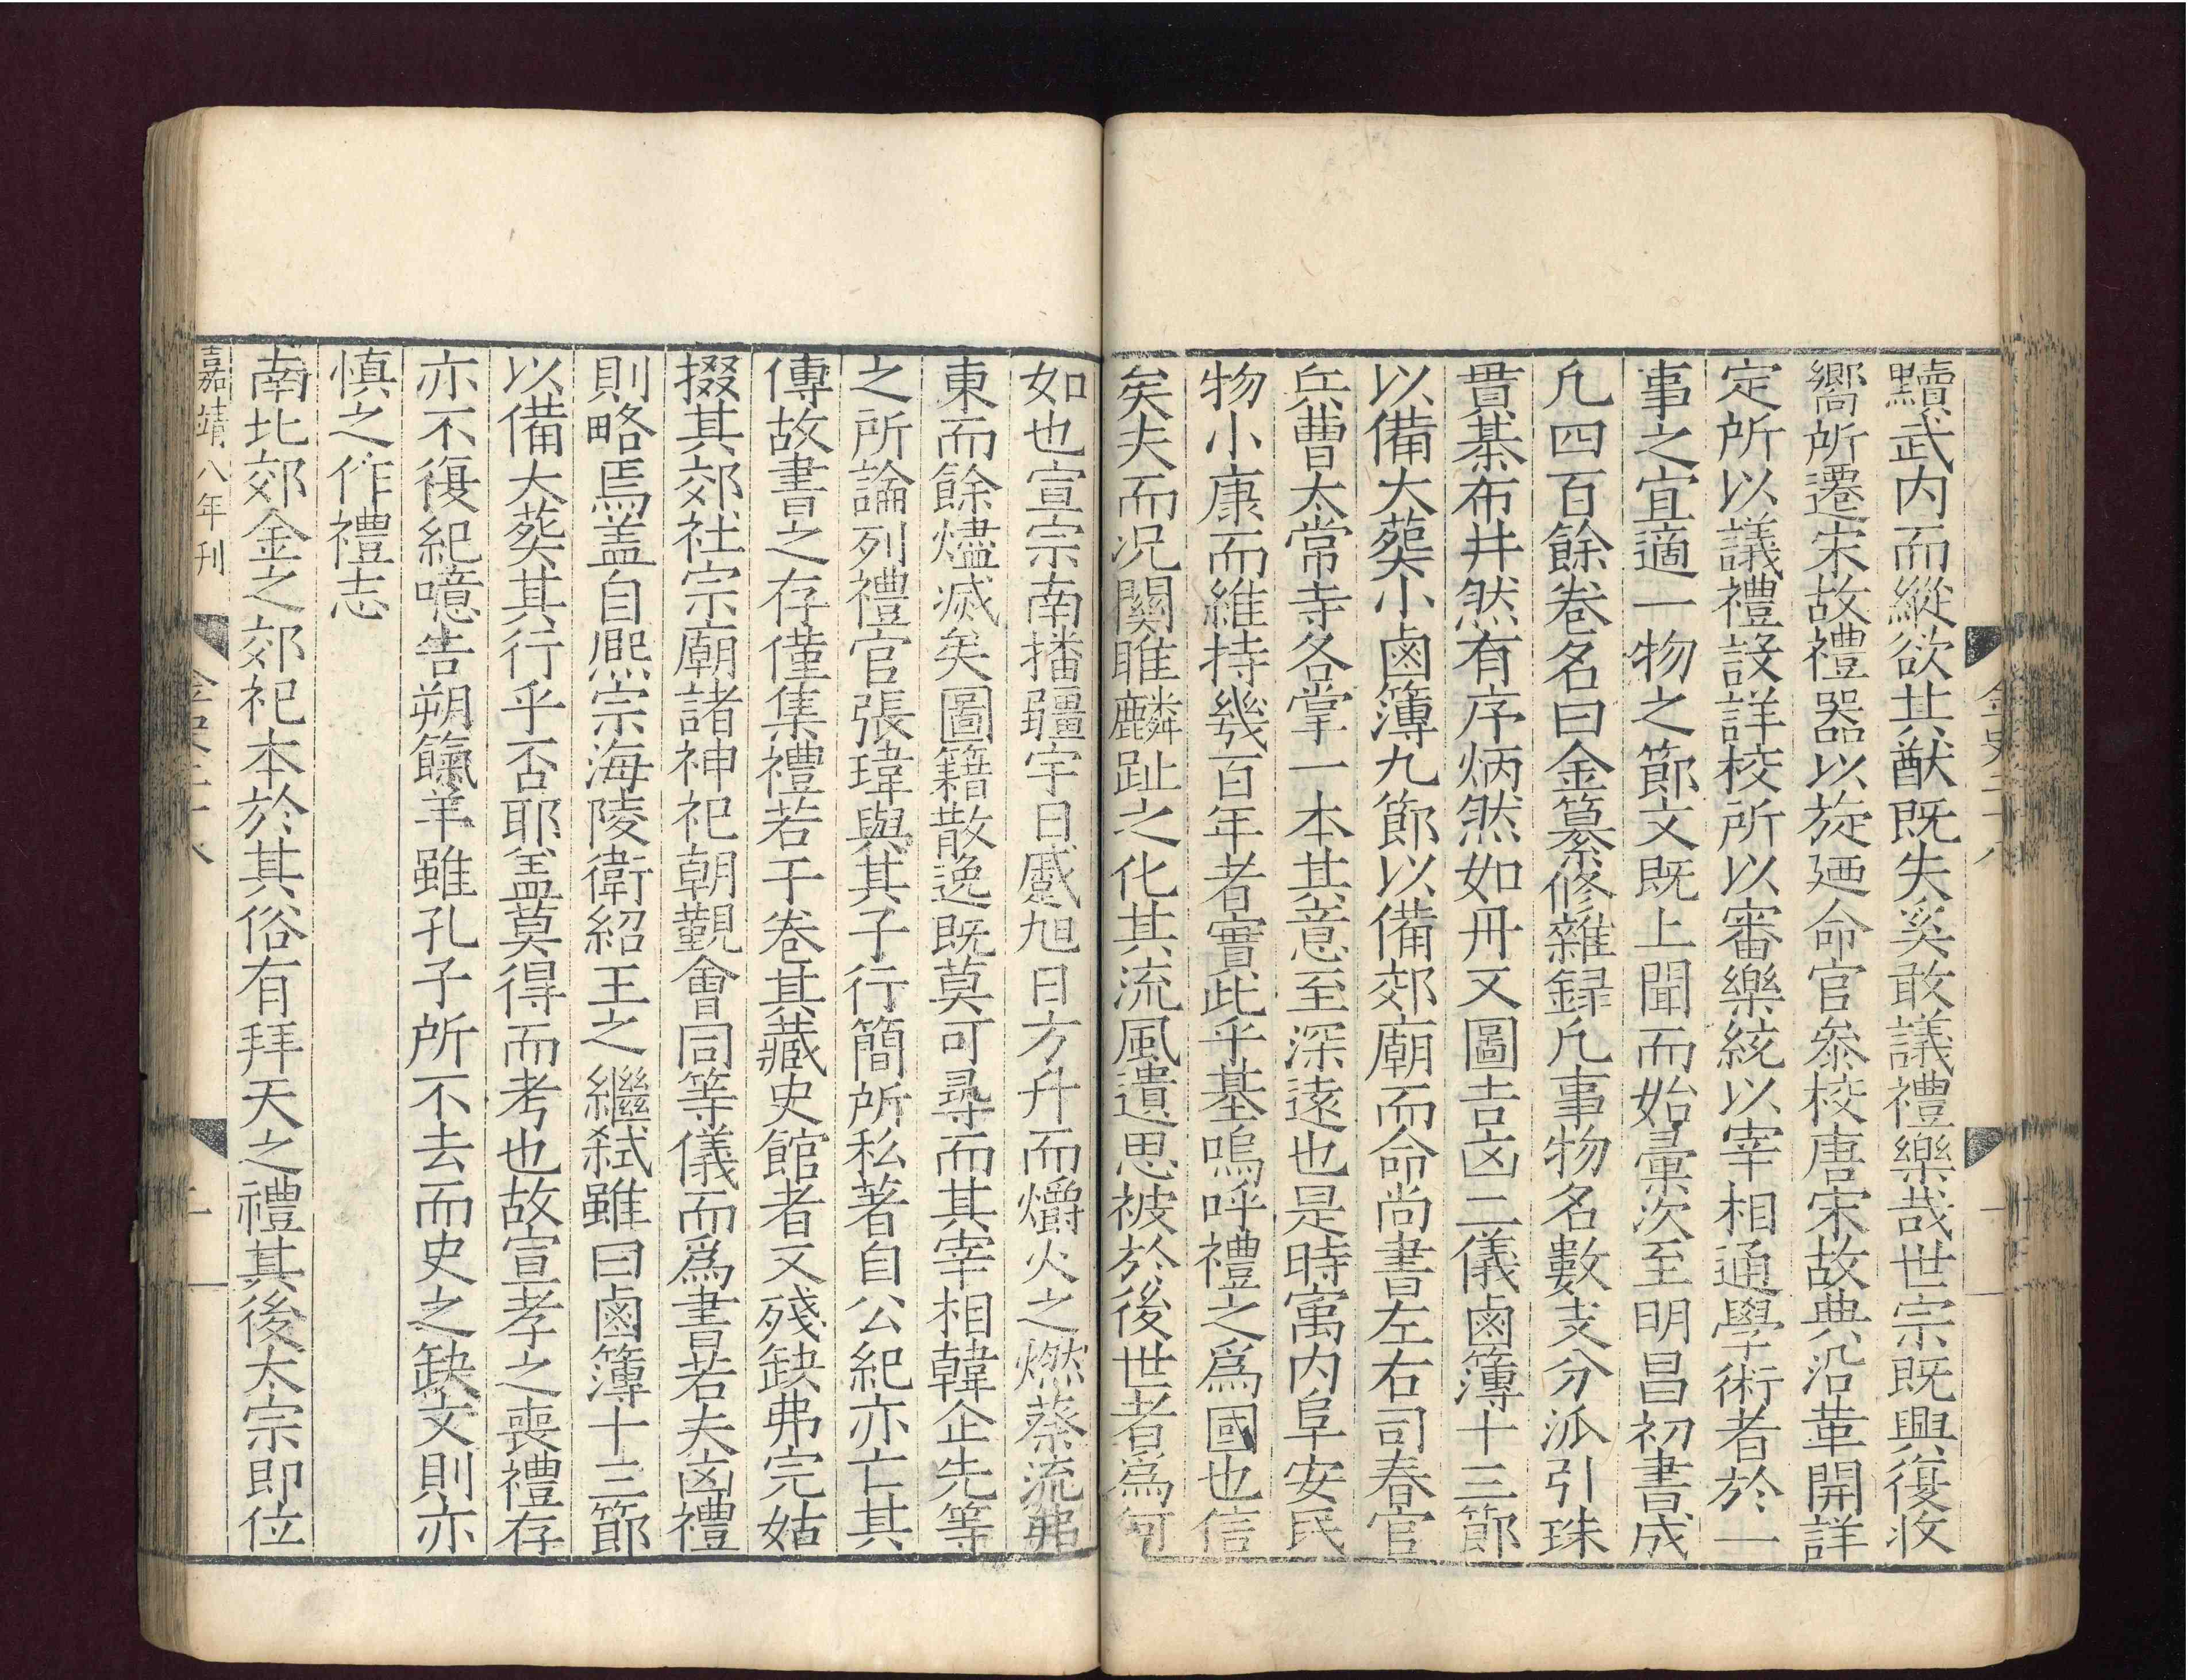 黷武内而縱欲其猷既失奚敢議禮樂哉世宗既興復收
嚮所遷宋故禮器以旋廼命官叅校唐宋故典沿革開詳
定所以議禮設詳校所以審樂統以宰相通學術者於一
事之宜適一物之節文既上聞而始彙次至明昌初書成
凡四百餘卷名曰金纂修雜録凡事物名數支分派引珠
貫棊布井然有序炳然如丹又圖吉凶二儀鹵簿十三節
以備大葬小鹵簿九節以備郊廟而命尚書左右司春官
兵曹太常寺各掌一本其意至深遠也是時寓内阜安民
物小康而維持幾百年者實此乎基嗚呼禮之爲國也信
矣夫而况關雎麟趾之化其流風遺思被於後世者爲何
如也宣宗南播疆宇日蹙旭日方升而爝火之燃蔡流弗
東而餘燼滅矣圖籍散逸既莫可尋而其宰相韓企先等
之所論列禮官張瑋與其子行簡所私著自公紀亦亡其
傳故書之存僅集禮若干卷其藏史館者又殘缺弗完姑
掇其郊社宗廟諸神祀朝覲會同等儀而爲書若夫凶禮
則略焉盖自熈宗海陵衛紹王之繼弑雖曰鹵簿十三節
以備大葬其行乎否耶盖莫得而考也故宣孝之喪禮存
亦不復紀噫告朔餼羊雖孔子所不去而史之缺文則亦
慎之作禮志
南北郊金之郊祀本於其俗有拜天之禮其後太宗即位
嘉靖八年刊